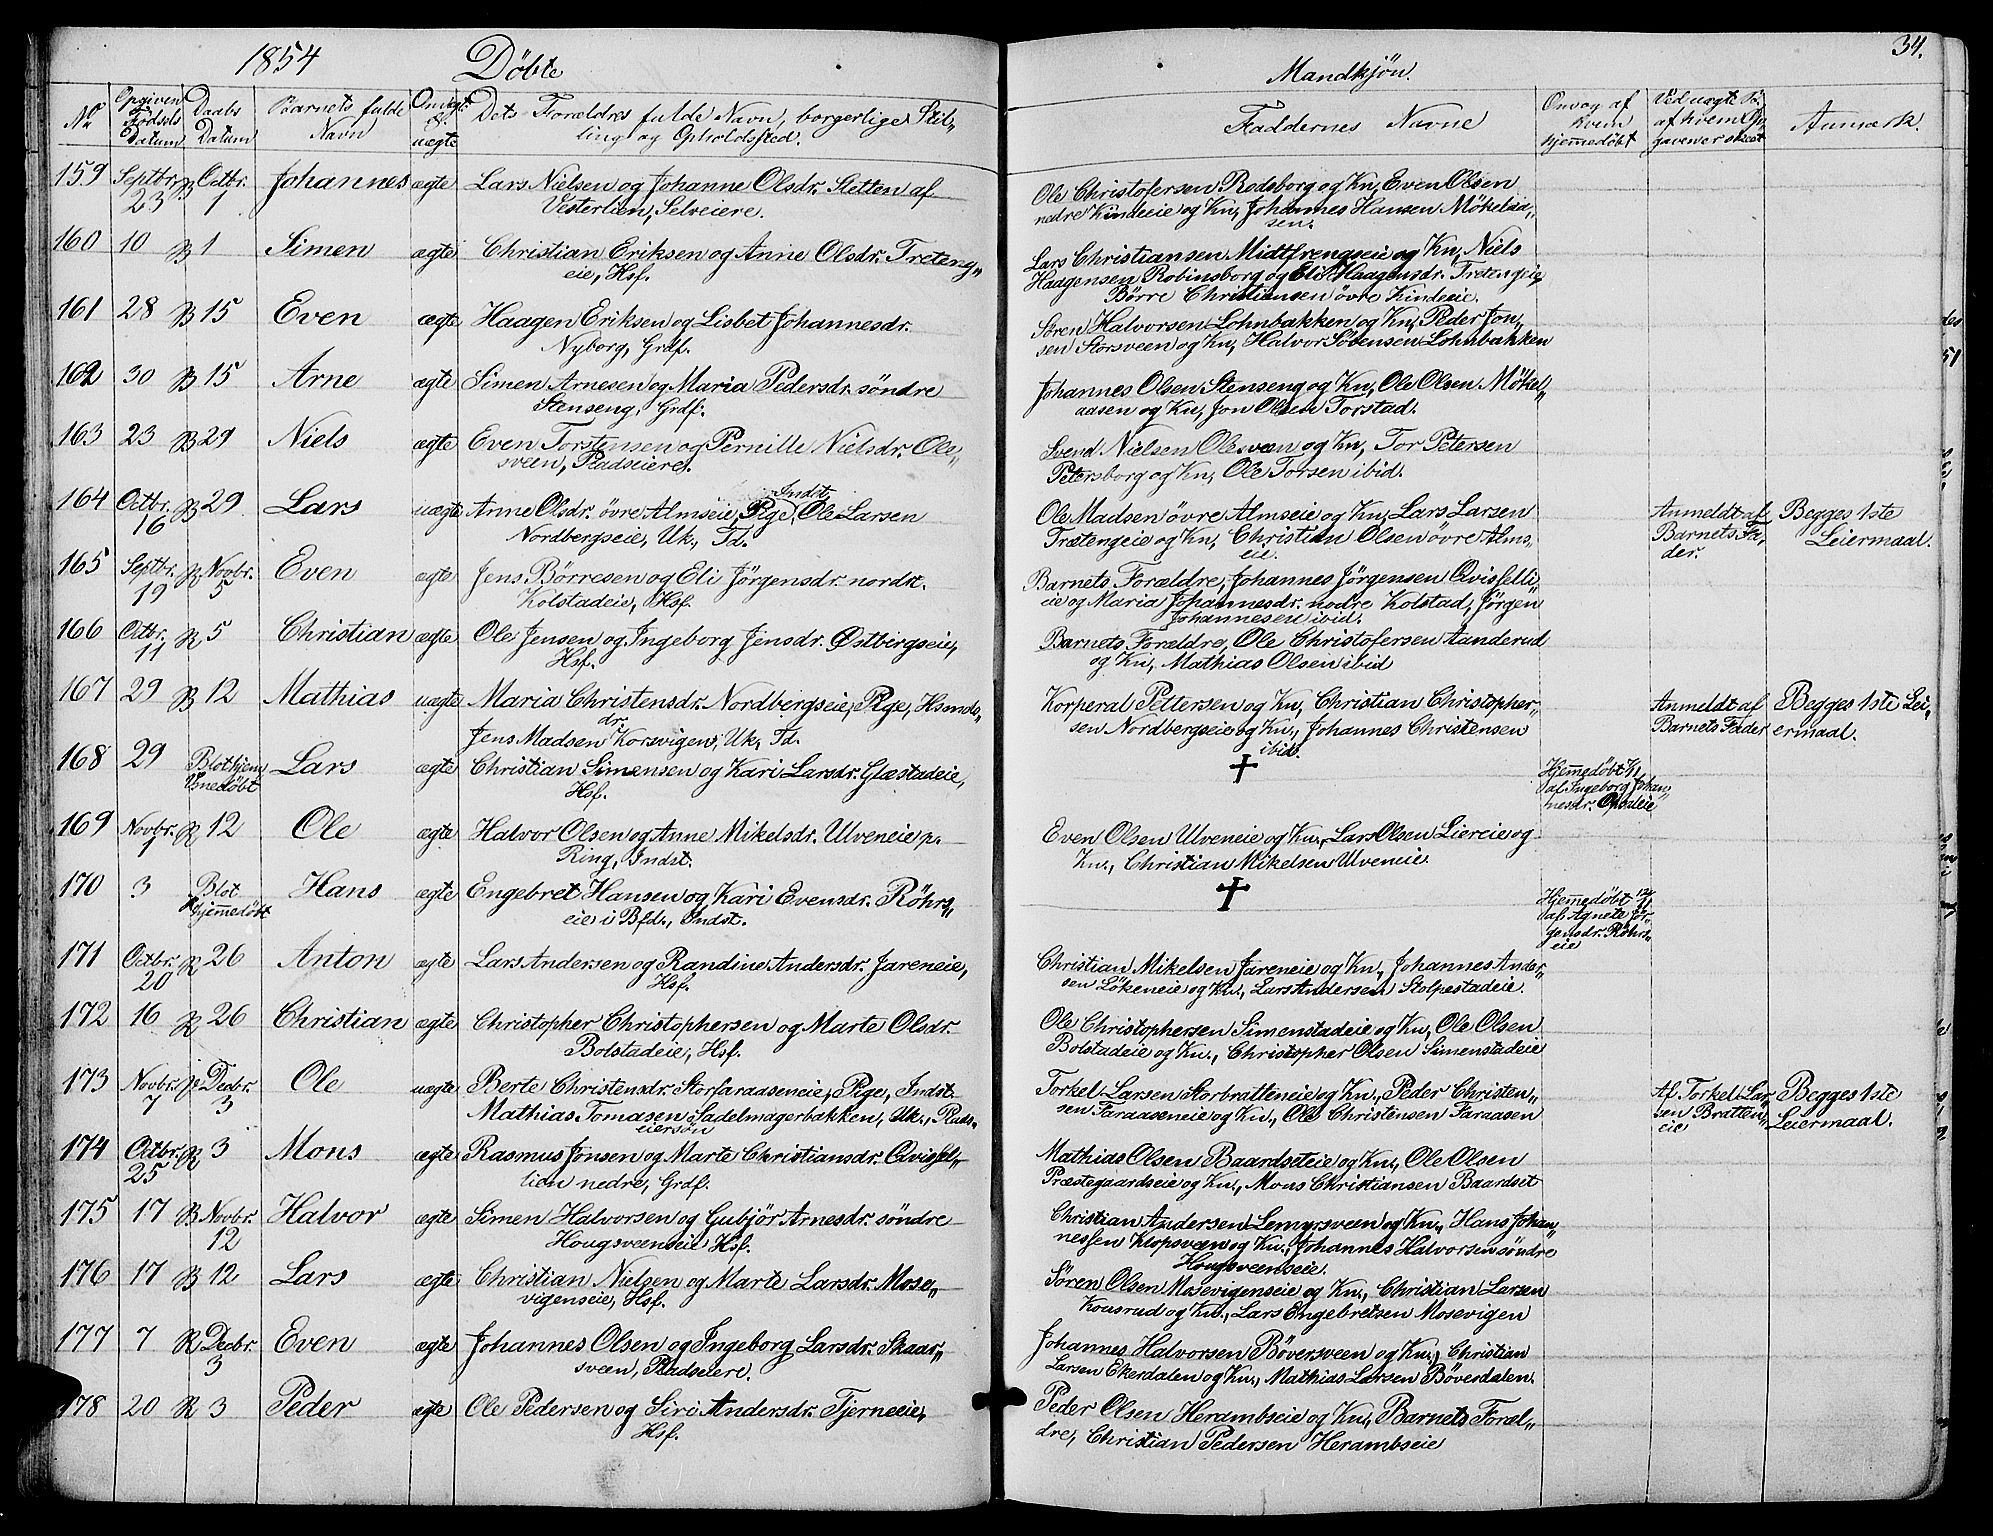 1854 Döbte
No Opgiven Födsels Datum Daabs Datum Barnets fulde Navn Om ægte el. uægte Dets Forældres fulde Navn, borgerlige Stil-
ling og Opholdssted.
159 Septbr. 23 B Octbr. 1 Johannes ægte Lars Nielsen og Johanne Olsdr. Sletten af
Vesterlien, Selveiere.
160 10 B 1 Simen ægte Christian Eriksen og Anne Olsdr. Treteng„
eie, Hsf.
161 28 B 15 Even ægte Haagen Eriksen og Lisbet Johannesdr.
Nyborg, Grdf.
162 30 B 15 Arne ægte Simen Arnesen og Maria Pedersdr. söndre
Stenseng, Grdf.
163 23 B 29 Niels ægte Even Torstensen og Pernille Nielsdr. Ole„
sveen, Pladseiere.
164 Octbr. 16 B 29 Lars uægte Anne Olsdr. övre Almseie, Pige, Indst. Ole Larsen
Nordbergseie, Uk., Td.
165 Septbr. 19 R Novbr. 5 Even ægte Jens Börresen og Eli Jörgensdr. nordst.
Kolstadeie, Hsf.
166 Octbr. 11 R 5 Christian ægte Ole Jensen og Ingeborg Jensdr. Østbergseie,
Hsf.
167 29 B 12 Mathias uægte Maria Christensdr. Nordbergseie, Pige, Hsmds„
dr. Jens Madsen Korsvigen, Uk., Td.
168 29 Blot hjem
medöbt Lars ægte Christian Simensen og Kari Larsdr. Glæstadeie,
Hsf.
169 Novbr. 1 R 12 Ole ægte Halvor Olsen og Anne Mikelsdr. Ulveneie p.
Ring, Indst.
170 3 Blot
hjemmedöbt Hans ægte Engebret Hansen og Kari Evensdr. Röhrs„
eie i Bfd., Indst.
171 Octbr. 20 R 26 Anton ægte Lars Andersen og Randine Andersdr. Jareneie,
Hsf.
172 16 R 26 Christian ægte Christopher Christophersen og Marte Olsdr.
Bolstadeie, Hsf.
173 Novbr. 7 Decbr. 3 Ole uægte Berte Christensdr. Storfaraaseneie, Pige, Indst.
Mathias Tomasen Sadelmagerbakken, Uk., Plads„
eiersön
174 Octbr. 25 R 3 Mons ægte Rasmus Jonsen og Marte Christiansdr. Qvissel„
lien nedre, Grdf.
175 17 B Novbr. 12 Halvor ægte Simen Halvorsen og Gubjör Arnesdr. söndre
Hougsveenseie Hsf.
176 17 B 12 Lars ægte Christian Nielsen og Marte Larsdr. Mose„
vigenseie, Hsf.
177 7 R Decbr. 3 Even ægte Johannes Olsen og Ingeborg Larsdr. Skaar„
sveen, Pladseiere.
178 20 R 3 Peder ægte Ole Pedersen og Siri Andersdr. Tjerneeie,
Hsf.
34.
Mandkjön.
Faddernes Navne Om og af hvem hjemmedöbt Ved uægte af hvem Opgaven er skeet Anmærk.
Ole Christofersen Rodsborg og Kn, Even Olsen
nedre Kindeeie og Kn, Johannes Hansen Mökelaa„
sen.
Lars Christiansen Midtfrengseie og Kn, Niels
Haagensen Robinsborg og Eli Haagensdr. Tretengeie,
Börre Christiansen övre Kindeeie.
Sören Halvorsen Lohnbakken og Kn, Peder Jon„
sen Storsveen og Kn, Halvor Sörensen Lohnbakken
Johannes Olsen Stenseng og Kn, Ole Olsen Mökel„
aasen og Kn, Jon Olsen Torstad.
Svend Nielsen Olesveen og Kn, Tor Petersen
Petersborg og Kn, Ole Torsen ibid.
Ole Madsen övre Almseie og Kn, Lars Larsen
Trætengeie og Kn, Christian Olsen övre Alms„
eie. Anmeldt af
Barnets Fa„
der. Begges 1ste
Leiermaal.
Barnets Forældre, Johannes Jörgensen Qvisselli„
eie og Maria Johannesdr. nedre Kolstad, Jörgen
Johannesen ibid.
Barnets Forældre, Ole Christofersen Aanderud
og Kn, Mathias Olsen ibid
Korperal Pettersen og Kn, Christian Christopher„
sen Nordbergseie og Kn., Johannes Christensen
ibid. Anmeldt af
Barnets Fader Begges 1ste Lei„
ermaal.
† Hjemmedöbt
af Ingeborg Johan„
nesdr. Opsaleie
Even Olsen Ulveneie og Kn., Lars Olsen Liereie og
Kn., Christian Mikelsen Ulveneie.
† Hjemmedöbt 12/11
af Agnete Jör„
gensdr. Röhrs„
eie
Christian Mikelsen Jareneie og Kn., Johannes Ander„
sen Lökeneie og Kn., Lars Andersen Stolpestadeie.
Ole Christophersen Simenstadeie og Kn., Ole Olsen
Bolstadeie og Kn., Christopher Olsen Simenstadeie
Torkel Larsen Storbratteneie og Kn., Peder Christen„
sen Faraaseneie og Kn., Ole Christinsen Faraasen Af Torkel Lar„
sen Bratten„
eie Begges 1ste
Leiermaal.
Mathias Olsen Baardseteie og Kn., Ole Olsen
Præstegaardseie og Kn., Mons Christiansen Baardset
Christian Andersen Lemyrsveen og Kn., Hans Johan„
nessen Klopsveen og Kn., Johannes Halvorsen söndre
Hougsveenseie.
Sören Olsen Mosevigenseie og Kn., Christian Larsen
Kousrud og Kn., Lars Engebretsen Mosevigen
Johannes Halvorsen Böversveen og Kn., Christian
Larsen Ekerdalen og Kn., Mathias Larsen Böverdalen.
Peder Olsen Herambseie og Kn., Barnets Foræl„
dre, Christian Pedersen Herambseie